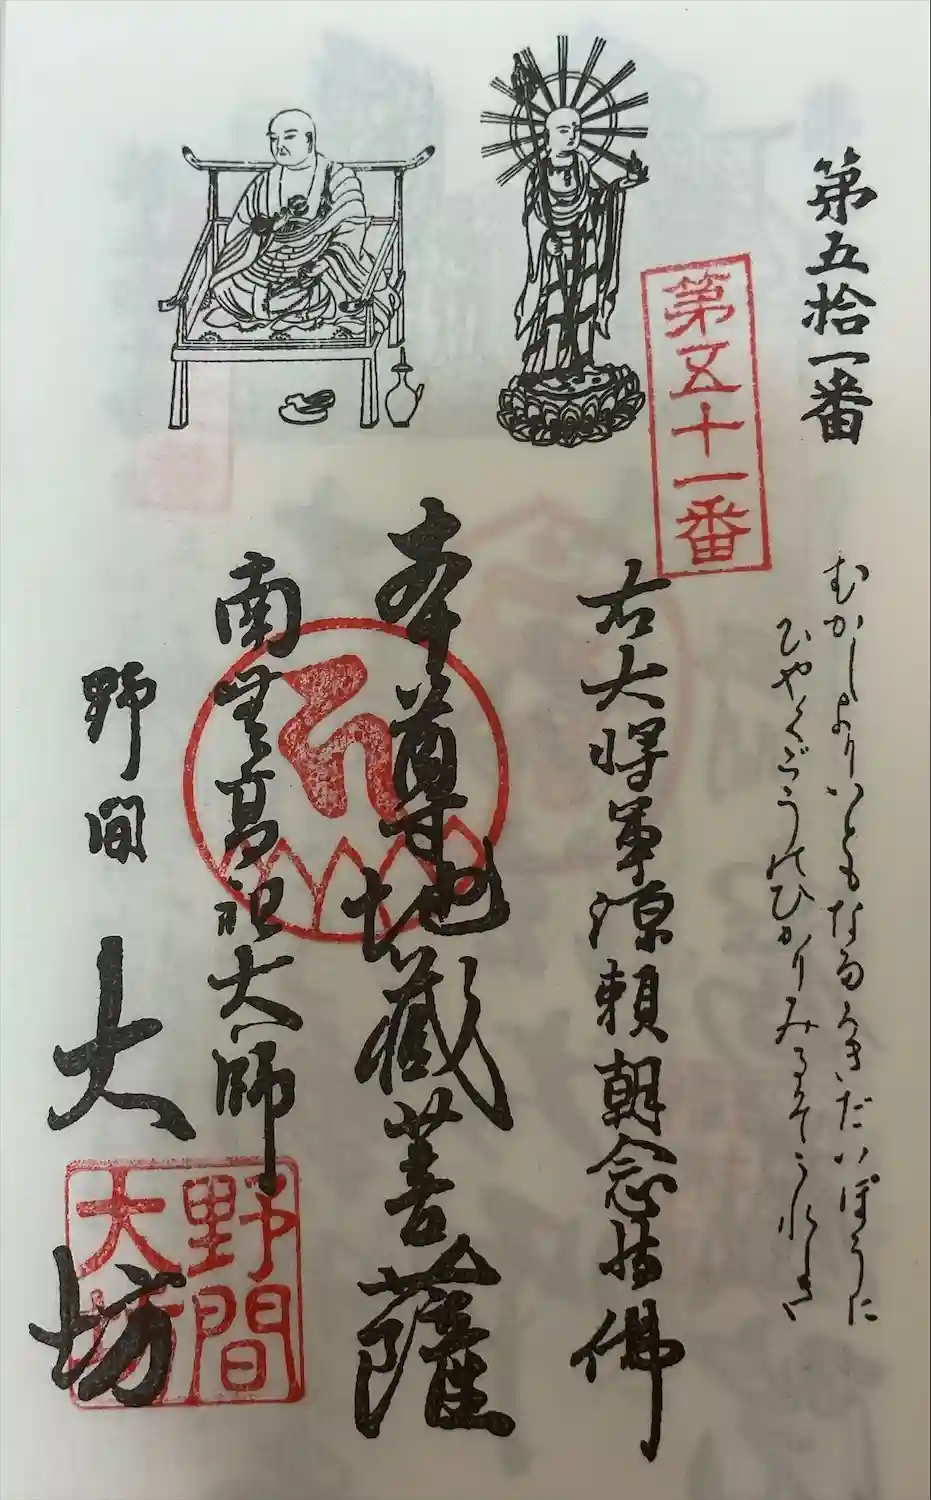 第五拾一番
むかしよりいともなるきだいぼうに
ひやくごうのひかりみるぞうれしき
第五十一番
右大将軍源頼朝念持佛
本尊地蔵菩薩
南無高祖大師
野間
大坊
野間
大坊